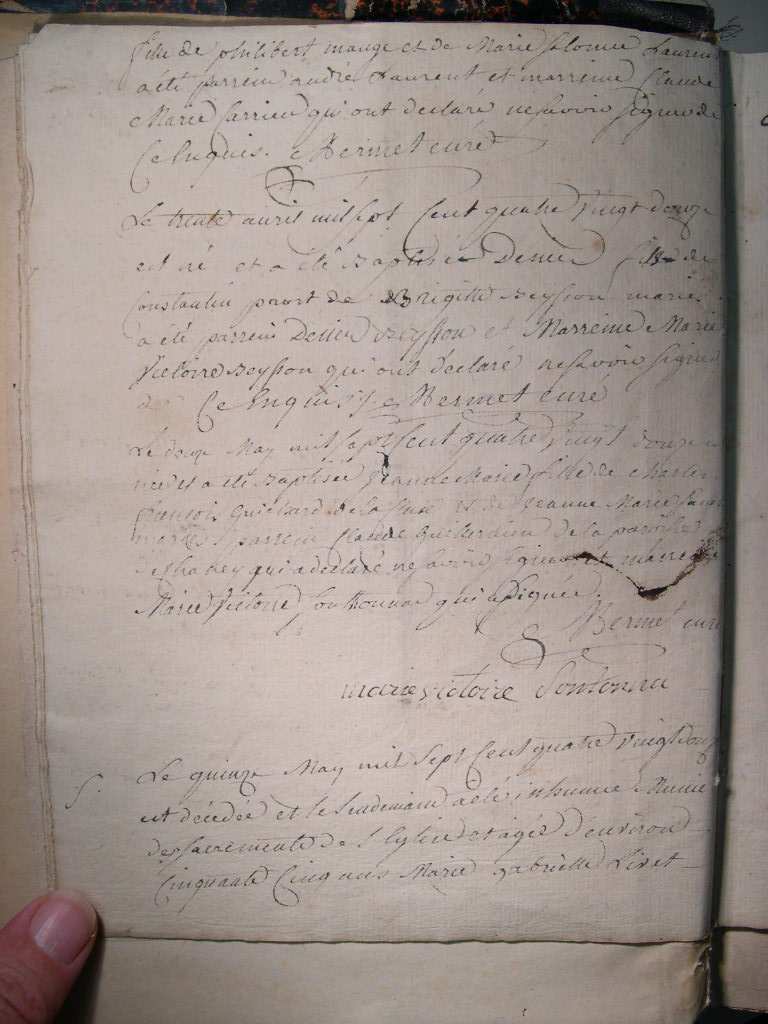 fille de philibert mauge et de Marie Salomée Laurent
a été parrein andré Laurent et marreine Claude
Marie Sarrieu qui ont declaré ne savoir signer de
Ce Enquis. Bermet curé
Le trente avril mil sept Cent quatre vingt douze
est né et a été Baptisé Denis fils de
Constantin et de Brigitte Beysson mariés
a été parrein Denis Beysson et Marreine Marie
Victoire Beysson qui ont declaré ne savoir signer
de Ce Enquis Bermet curé
Le douze May mil sept Cent quatre vingt douze
née et a été Baptisée Jeanne Marie fille de Charles
françois et de Jeanne Marie
mariés parrein Claude de la paroisse
de qui a declaré ne savoir signer et marreine
Marie Victoire qui a signée.
Bermet curé
marie victoire Sontonna
S. Le quinze May mil Sept Cent quatre vingt douze
est décedée et le lendemain a eté inhumée Munie
des sacrements de l'Eglise et agée d'environ
Cinquante Cinq ans Marie gabrielle Livet